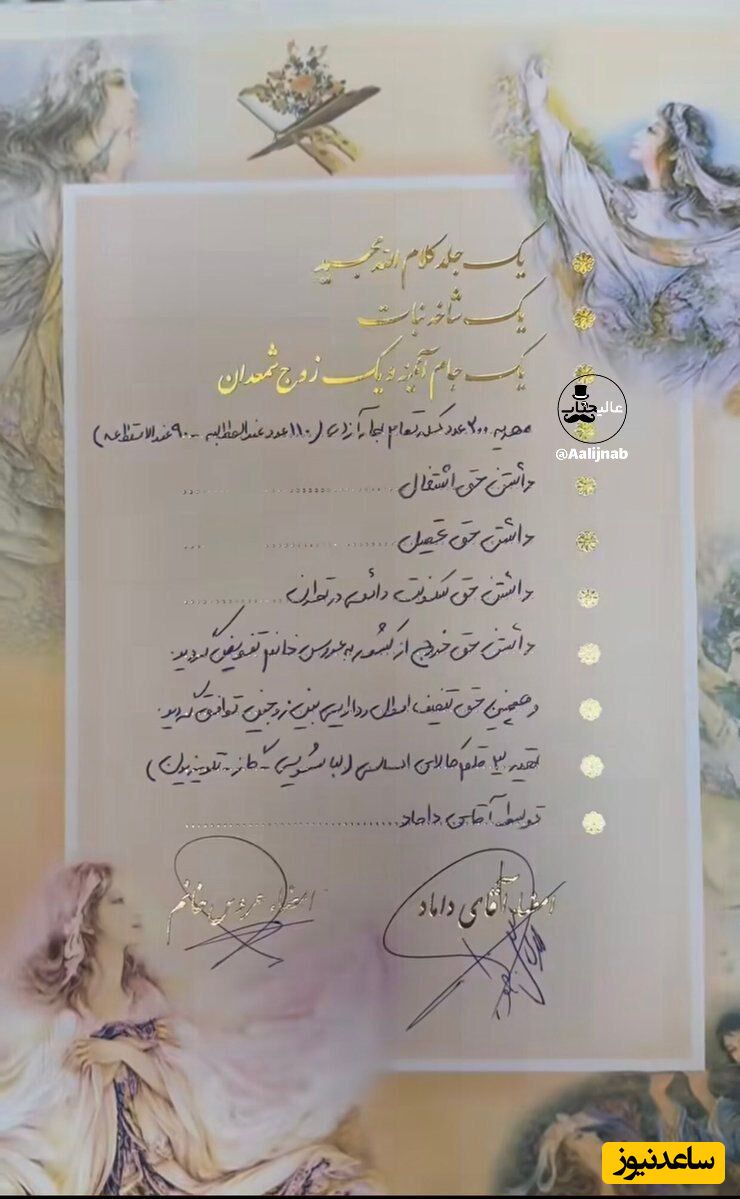 یک جلد کلام الله مجید
یک شاخه نبات
یک جام آینه و یک زوج شمعدان
عالیجناب
@Aalijnab
مهریه ۲۰۰ عدد سکه تمام بهار آزادی (۱۱۰ عدد عندالمطالبه - ۹۰ عندالاستطاعه)
داشتن حق اشتغال
داشتن حق تحصیل
داشتن حق سکونت دائم در تهران
داشتن حق خروج از کشور به عروس خانم تفویض گردید.
و همچنین حق تنصیف اموال و دارایی بین زوجین توافق گردید.
تهیه ۳ قلم کالای اساسی (لباسشویی - گاز - تلویزیون)
توسط آقای داماد
امضاء آقای داماد
امضاء عروس خانم
ساعدنیوز